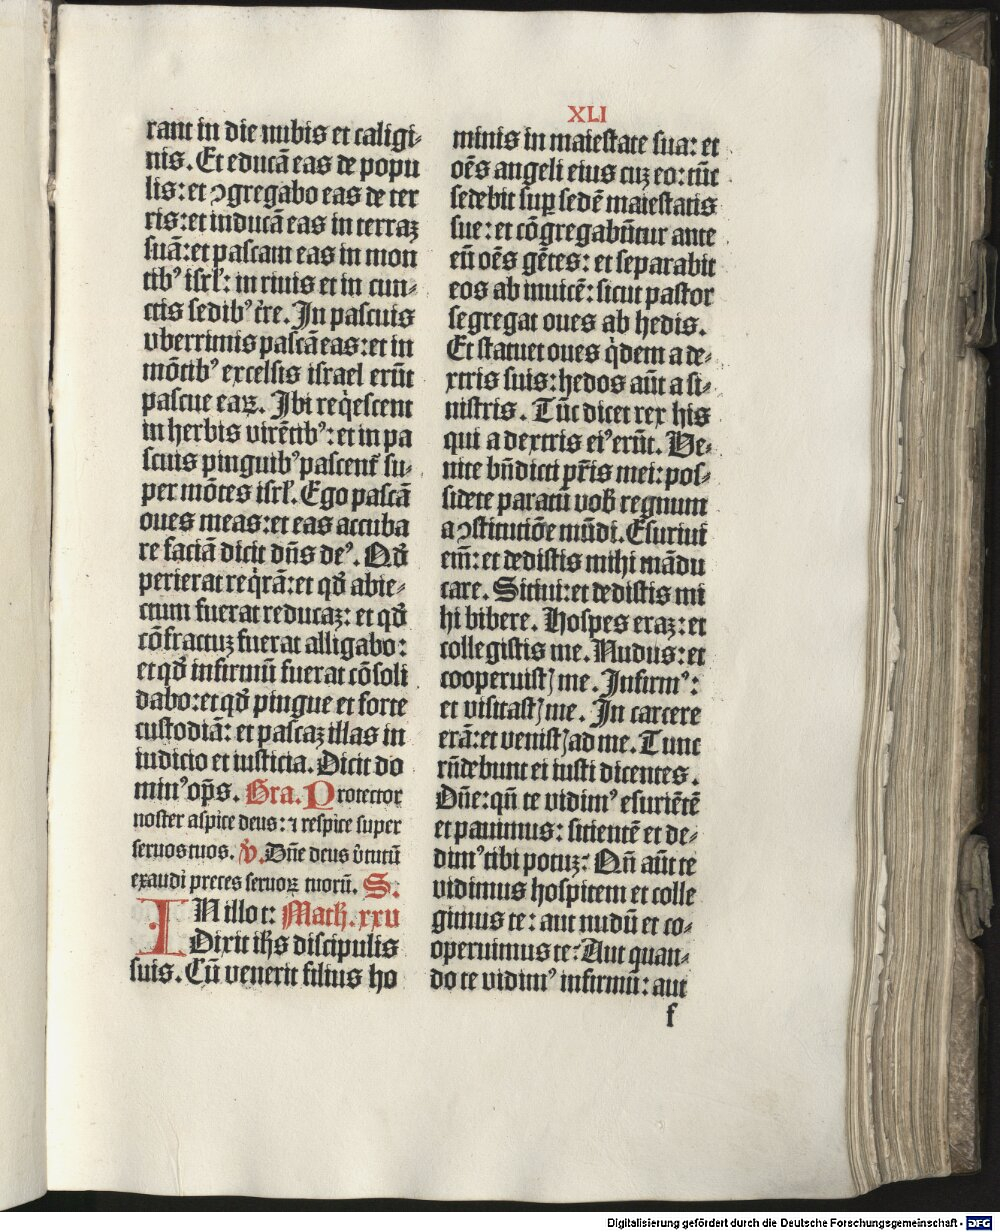 XLI
rant in die nubis et caligi-
nis. Et educā eas de popu
lis: et ꝯgregabo eas de ter
ris: et inducā eas in terraꝫ
suā: et pascam eas in mon
tibꝰ isrl̄: in riuis et in cun-
ctis sedibꝰ t̄re. In pascuis
vberrimis pascā eas: et in
mōtibꝰ excelsis israel erūt
pascue eaꝝ. Ibi reqͥescent
in herbis virētibꝰ: et in pa
scuis pinguibꝰ pascent᷑ su-
per mōtes isrl̄. Ego pascā
oues meas: et eas accuba
re faciā dicit dn̄s deꝰ. Qḋ
perierat reqͥrā: et qḋ abie-
ctum fuerat reducaꝫ: et qḋ
cōfractuꝫ fuerat alligabo:
et qḋ infirmū fuerat cōsoli
dabo: et qḋ pingue et forte
custodiā: et pascaꝫ illas in
iudicio et iusticia. Dicit do
minꝰ op̄s. Gra. Protector
noster aspice deus: ⁊ respice super
seruos tuos. v̇. Dn̄e deus v̓tutū
exaudi preces seruoꝝ tuorū. S.
IN illo t: Math. xxv
Dixit ih̄s discipulis
suis. Cū venerit filius ho
minis in maiestate sua: et
oēs angeli eius cuꝫ eo: tūc
sedebit suꝑ sedē maiestatis
sue: et cōgregabūtur ante
eū oēs gētes: et separabit
eos ab inuicē: sicut pastor
segregat oues ab hedis.
Et statuet oues qͥdem a de-
xtris suis: hedos aūt a si-
nistris. Tūc dicet rex his
qui a dextris eiꝰ erūt. Ve-
nite bn̄dicti pr̄is mei: pos-
sidete paratū vob̄ regnum
a ꝯstitutiōe mūdi. Esuriui
em̄: et dedistis mihi mādu
care. Sitiui: et dedistis mi
hi bibere. Hospes eraꝫ: et
collegistis me. Nudus: et
cooperuistꝭ me. Infirmꝰ:
et visitastꝭ me. In carcere
erā: et venistꝭ ad me. Tunc
rn̄debunt ei iusti dicentes.
Dn̄e: qn̄ te vidimꝰ esuriētē
et pauimus: sitientē et de-
dimꝰ tibi potuꝫ: Qn̄ aūt te
vidimus hospitem et colle
gimus te: aut nudū et co-
operuimus te: Aut quan-
do te vidimꝰ infirmū: aut
f
Digitalisierung gefördert durch die Deutsche Forschungsgemeinschaft - DFG